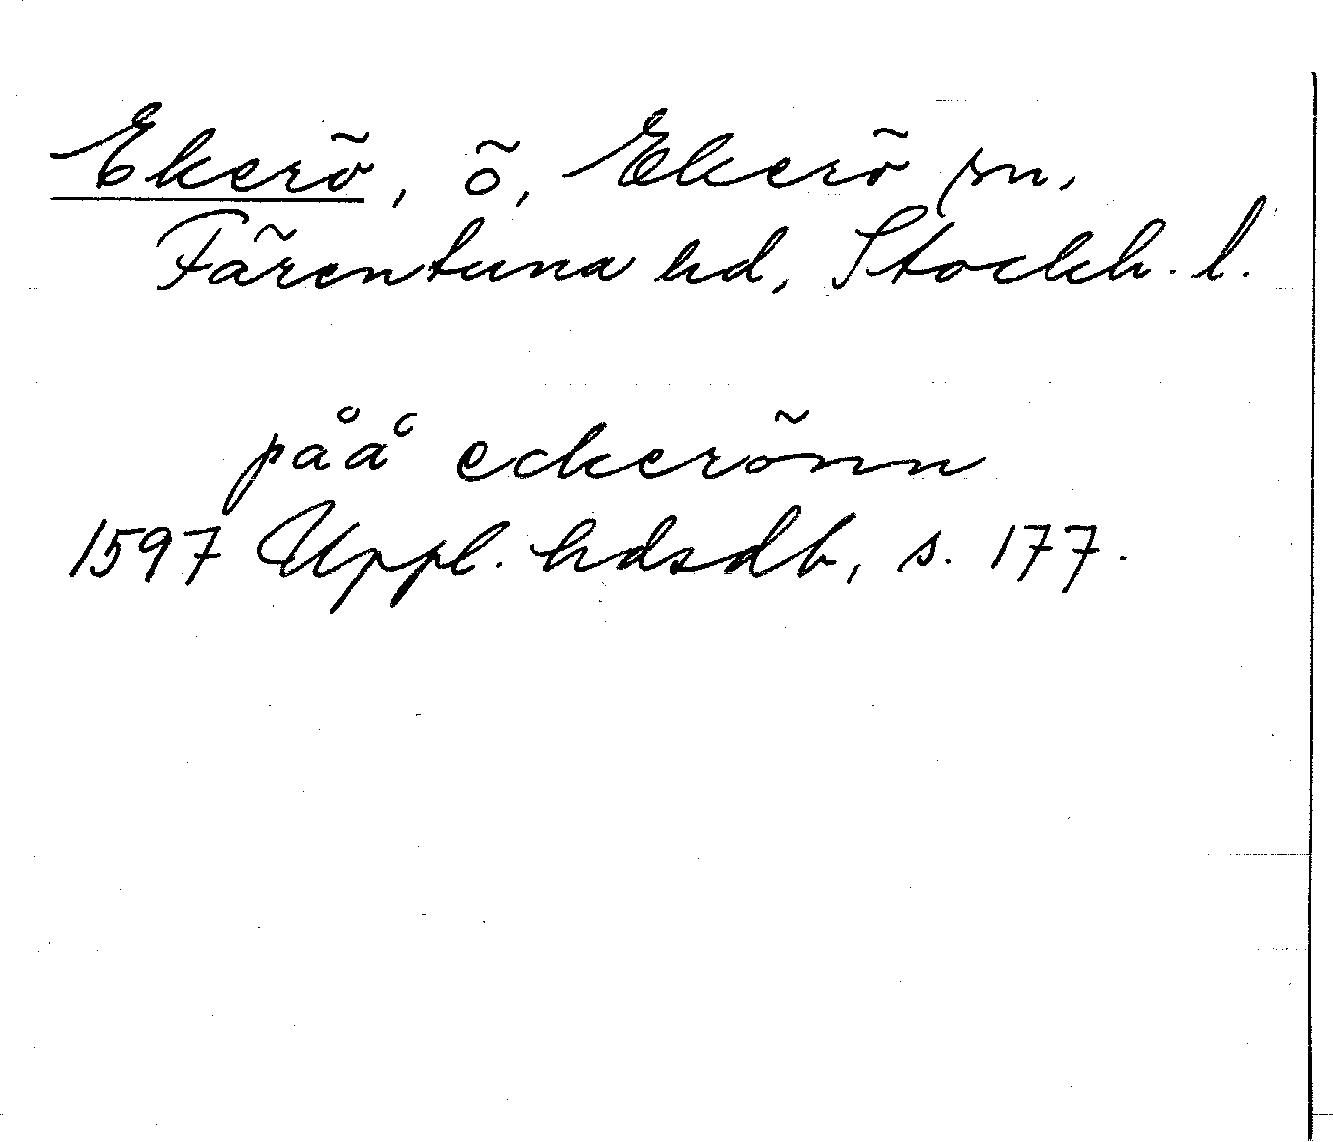 Ekerö, ö, Ekerö sn,
Färentuna hd, Stockh. l.
påå eckerönn
1597 Uppl. hdsdb, s. 177.